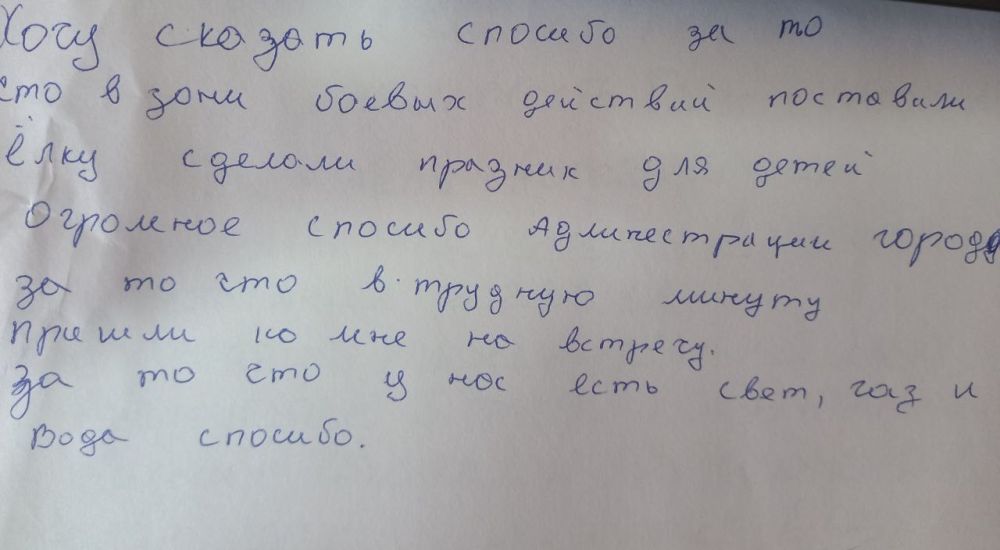 Хочу сказать спосибо за то
что в зони боевых действий поставили
ёлку сделали празник для детей
Огромное спосибо Админестрации города
за то что в трудную минуту
пришли ко мне на встречу.
За то что у нос есть свет, газ и
вода спосибо.